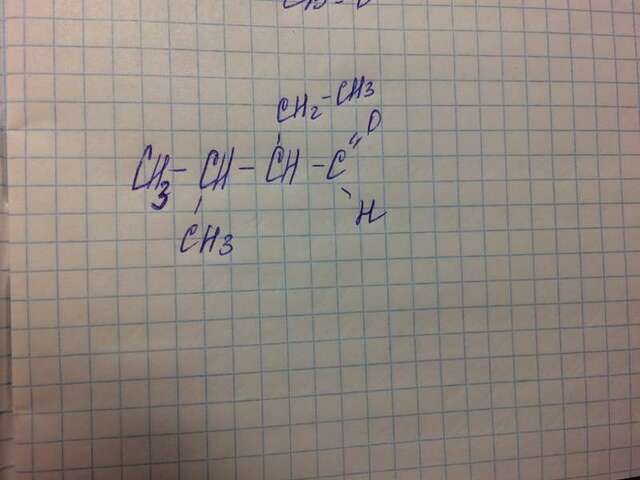 CH2-CH3
CH3-CH-CH-C=O
H
CH3